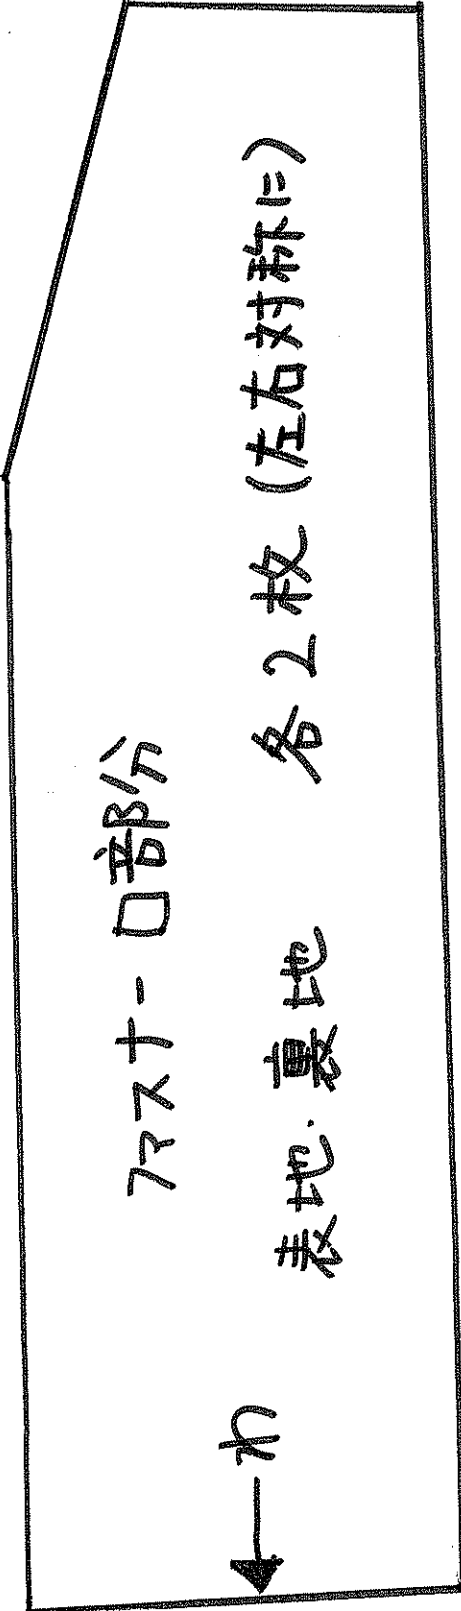 ファスナー口部分
表地・裏地 各2枚(左右対称に)
わ